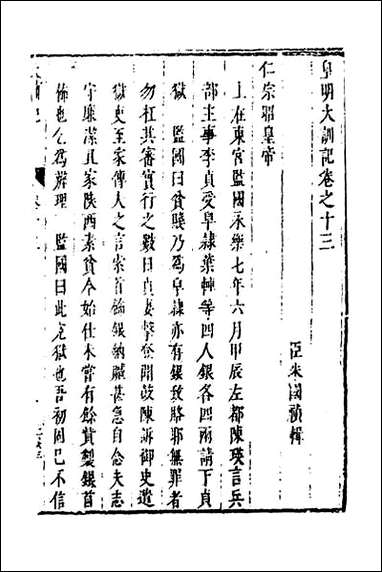 皇明大訓記卷之十三
臣朱國禎輯
仁宗昭皇帝
上在東宮監國永樂七年六月甲辰左都陳瑛言兵
部主事李貞受皂隷葉轉等四人銀各四兩請下貞
獄　監國曰貧賤乃爲皂隷亦有銀致賂耶無罪者
勿枉其審實行之數日貞妻擊登聞鼓陳訴御史遣
獄吏至家傳人之言索首飾銀納贓甚急自念夫志
守廉潔且家陝西素貧今始仕未嘗有餘貲製銀首
飾也乞爲辨理　監國曰此冤獄也吾初固已不信